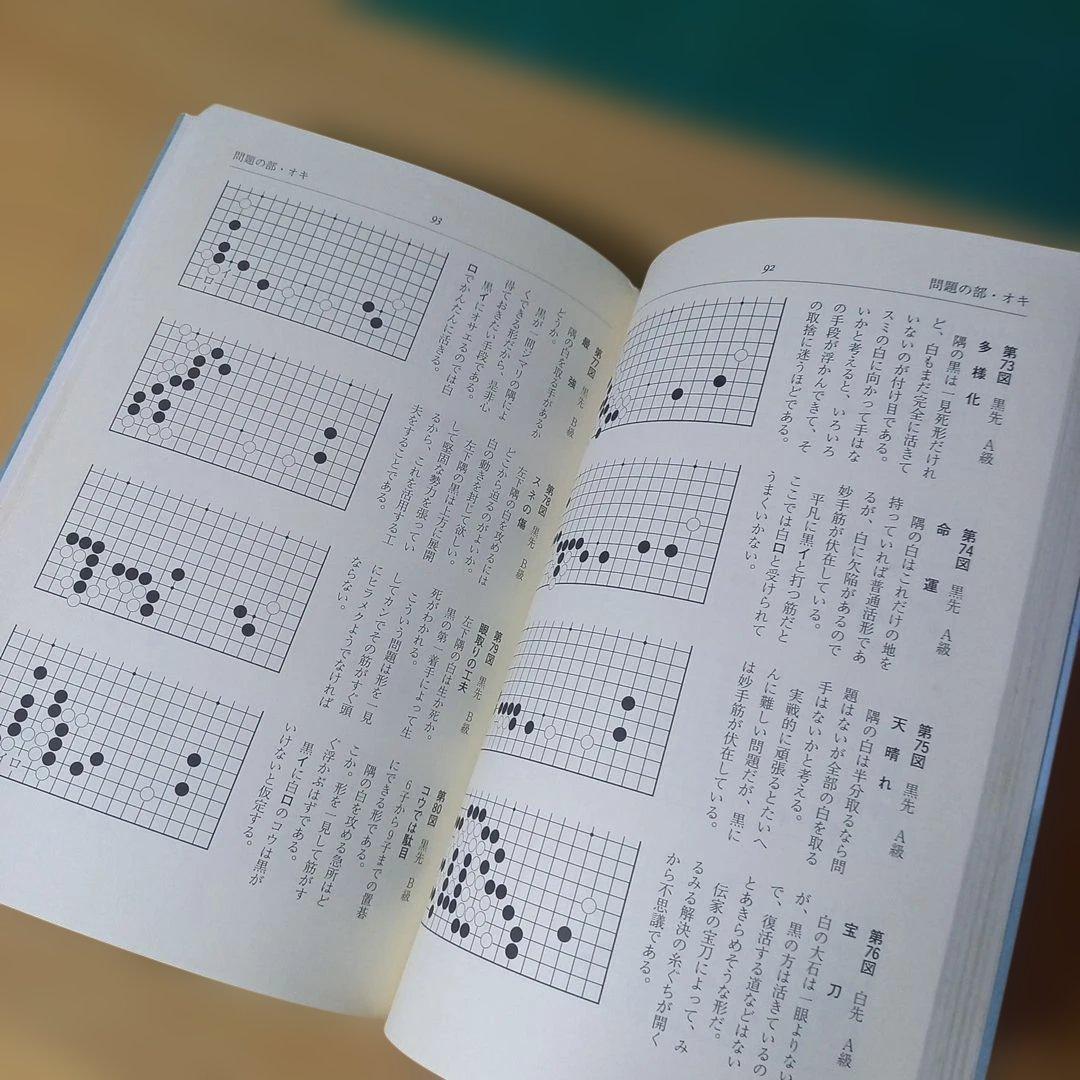 問題の部・オキ
92
第73図 黒先 A級
多様化
隅の黒は一見死形だけれ
ど、白もまだ完全に活きて
いないのが付け目である。
スミの白に向かって手はな
いかと考えると、いろいろ
の手段が浮かんできて、そ
の取捨に迷うほどである。
第74図 黒先 A級
命運
隅の白はこれだけの地を
持っていれば普通活形であ
るが、白に欠陥があるので
妙手筋が伏在している。
平凡に黒イと打つ筋だと
ここでは白ロと受けられて
うまくいかない。
第75図 黒先 A級
天晴れ
隅の白は半分取るなら問
題はないが全部の白を取る
手はないかと考える。
実戦的に頑張るとたいへ
んに難しい問題だが、黒に
は妙手筋が伏在している。
第76図 白先 A級
宝刀
白の大石は一眼よりない
が、黒の方は活きているの
で、復活する道などはない
とあきらめそうな形だ。
伝家の宝刀によって、み
るみる解決の糸ぐちが開く
から不思議である。
問題の部・オキ
93
第77図 黒先 B級
最強
隅の白を取る手があるか
どうか。
黒が一間シマリの隅によ
くできる形だから、是非心
得ておきたい手段である。
黒イにオサエるのでは白
ロでかんたんに活きる。
第78図 黒先 B級
スネの傷
左下隅の白を攻めるには
どこから迫るのがよいか。
白の動きを封じて欲しい。
左下隅の黒は上方に展開
して堅固な勢力を張ってい
るから、これを活用する工
夫をすることである。
第79図 黒先 B級
眼取りの工夫
左下隅の白は生か死か。
黒の第一着手によって生
死がわかれる。
こういう問題は形を一見
してカンでその筋がすぐ頭
にヒラメクようでなければ
ならない。
第80図 黒先 B級
コウでは駄目
6子から9子までの置碁
にできる形である。
隅の白を攻める急所はど
こか。形を一見して筋がす
ぐ浮かぶはずである。
黒イに白ロのコウは黒が
いけないと仮定する。
イ
ロ